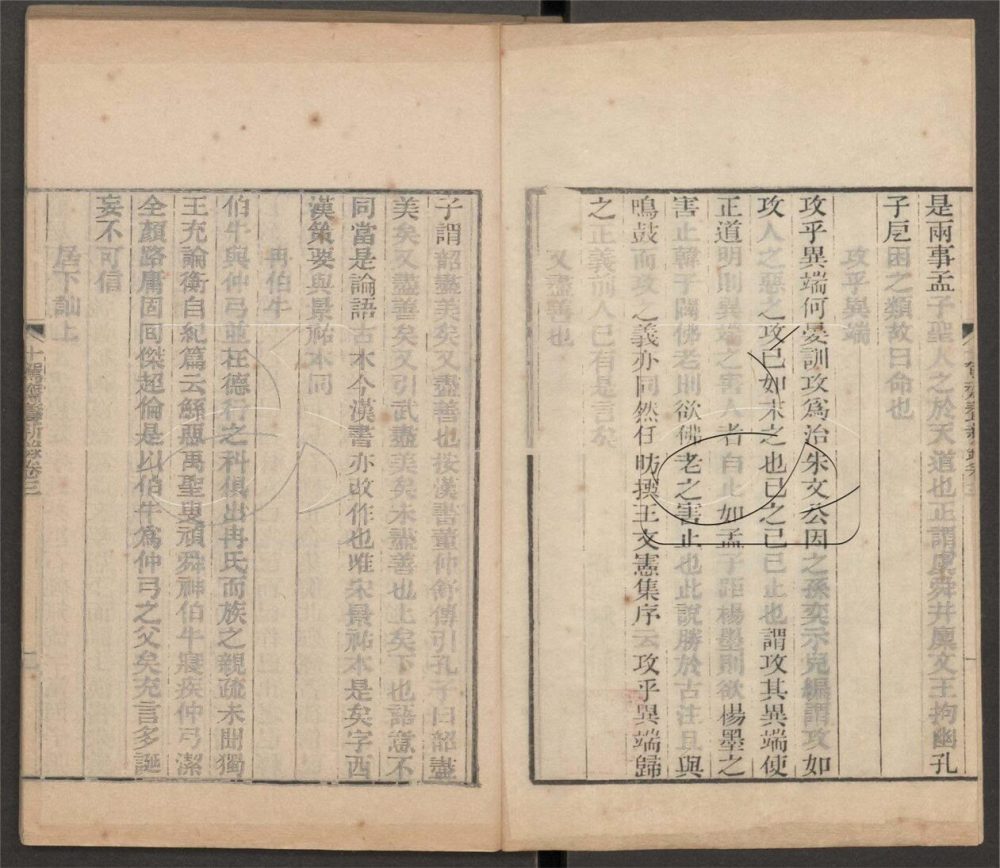 是兩事孟子聖人之於天道也正謂虞舜井廩文王拘幽孔
子戹困之類故曰命也
攻乎異端
攻乎異端何晏訓攻爲治朱文公因之孫奕示兒編謂攻如
攻人之惡之攻已如末之也已之已已止也謂攻其異端使
正道明則異端之害人者自止如孟子距楊墨則欲楊墨之
害止韓子闢佛老則欲佛老之害止也此說勝於古注且與
鳴鼓而攻之義亦同然任昉撰王文憲集序云攻乎異端歸
之正義則人已有是言矣
又盡善也
子謂韶盡美矣又盡善也按漢書董仲舒傳引孔子曰韶盡
美矣又盡善矣又引武盡美矣未盡善也上矣下也語意不
同當是論語古本今漢書亦改作也唯宋景祐本是矣字西
漢策要與景祐本同
冉伯牛
伯牛與仲弓並在德行之科俱出冉氏而族之親疏未聞獨
王充論衡自紀篇云鯀惡禹聖叟頑舜神伯牛寢疾仲弓潔
全顏路庸固回傑超倫是以伯牛爲仲弓之父矣充言多誕
妄不可信
居下訕上
十駕齋養新錄卷三